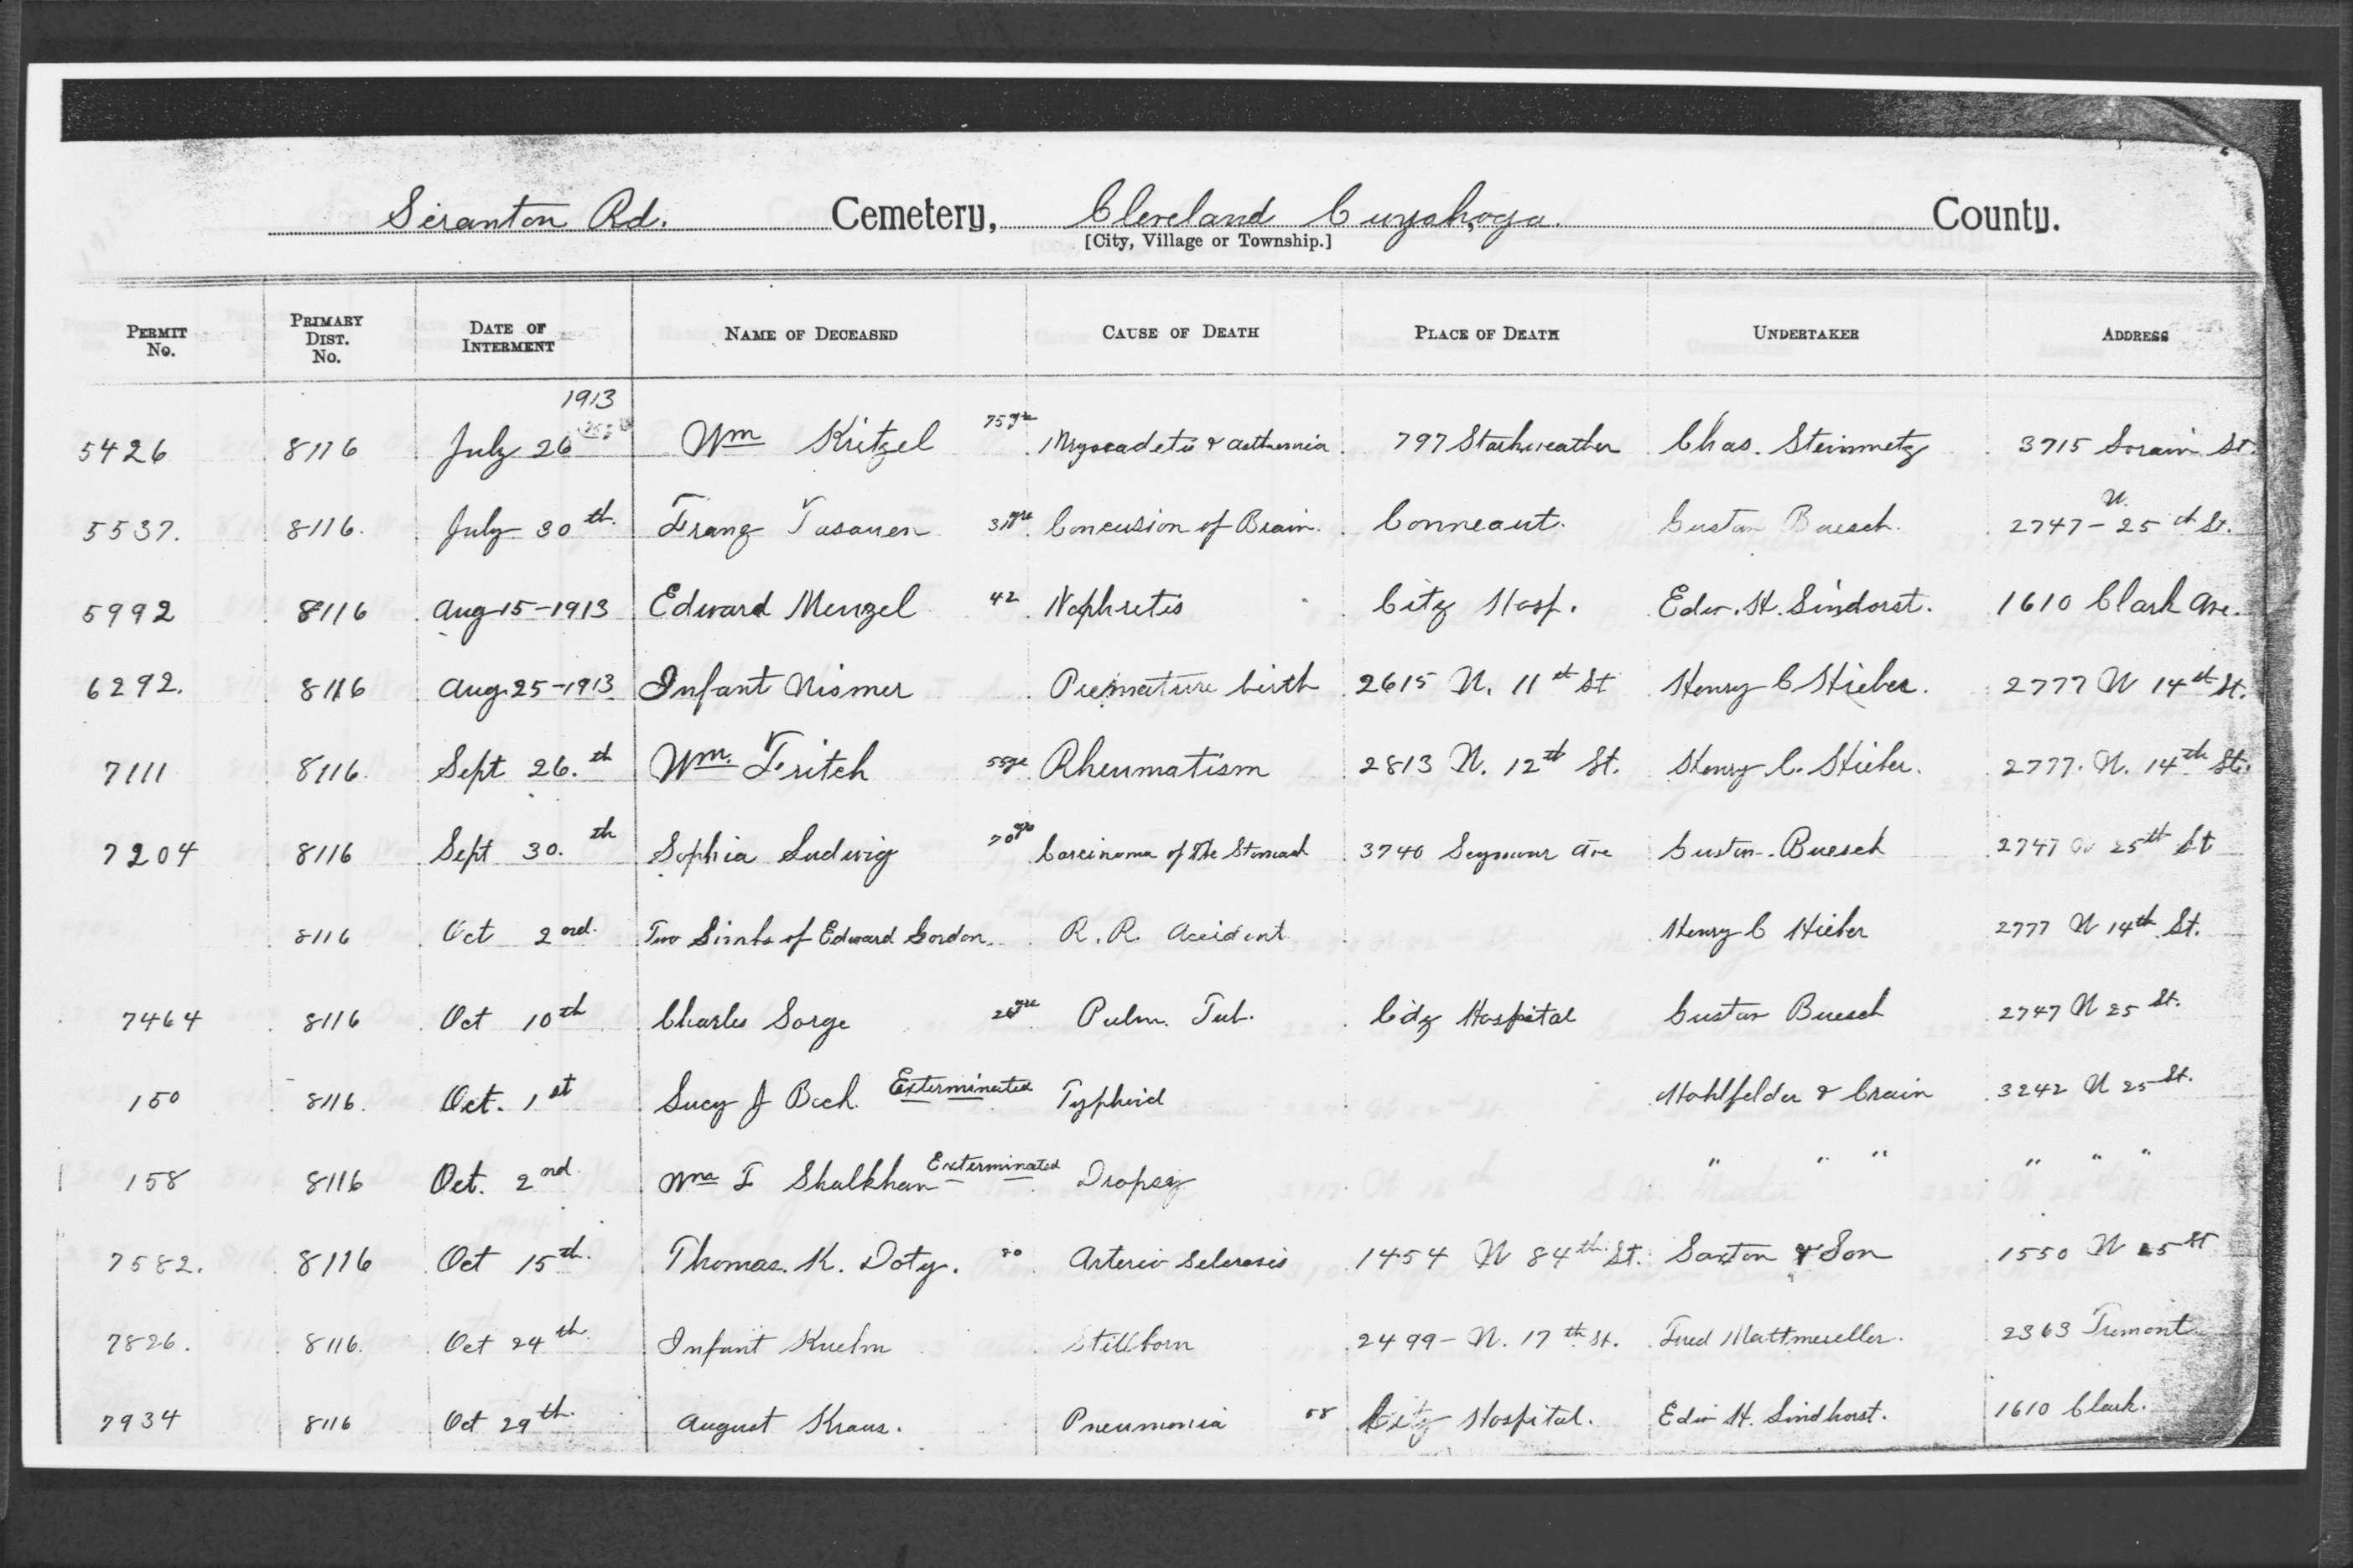 Scranton Rd. Cemetery, Cleveland Cuyahoga. County.
[City, Village or Township.]
PERMIT No. PRIMARY DIST. No. DATE OF INTERMENT NAME OF DECEASED CAUSE OF DEATH PLACE OF DEATH UNDERTAKER ADDRESS
1913
5426 8116 July 26 Wm Kritzel 75 yrs & 797 Starkweather Chas. Steinmetz 3715 Lorain St.
5537. 8116. July 30th. Franz Concusion of Brain. Conneaut. Gustav Buesch. 2747- W. 25th St.
5992 8116 Aug 15-1913 Edward Menzel 42 Nephretis City Hosp. Edw. H. Lindorst. 1610 Clark Ave.
6292. 8116 Aug. 25-1913 Infant Nismer Premature birth 2615 W. 11th St Henry C Hieber. 2777 W 14th St.
7111 8116. Sept 26.th Wm. Fritch 55 yrs Rheumatism 2813 W. 12th St. Henry C. Hieber. 2777. W. 14th St.
7204 8116 Sept 30.th Sophia Ludwig 70 yrs Carcinoma of the Stomach 3740 Seymour Ave Gustav. Buesch 2747 W 25th St
8116 Oct 2nd. Two Limbs of Edward Gordon. R. R. Accident Henry C Hieber 2777 W 14th St.
7464 8116 Oct 10th Charles Sorge yrs Pulm. Tub. City Hospital Gustav Buesch 2747 W 25 St.
150 8116. Oct. 1st Lucy J Beck Exterminated Typhoid & Crain 3242 W 25 St.
158 8116 Oct. 2nd. Wm F Exterminated Dropsy " " " " " "
7582. 8116 Oct 15th. Thomas. K. Doty. 80 Arterio Sclerosis 1454 W 84th St. Saxton & Son 1550 W 25 St
7826. 8116. Oct 24th. Infant Kuehn Stillborn 2499- W. 17th St. Fred Mattmueller. 2363 Tremont
7934 8116 Oct 29th. August Kraus. Pneumonia 58 City Hospital. Edw H. Lindhorst. 1610 Clark.